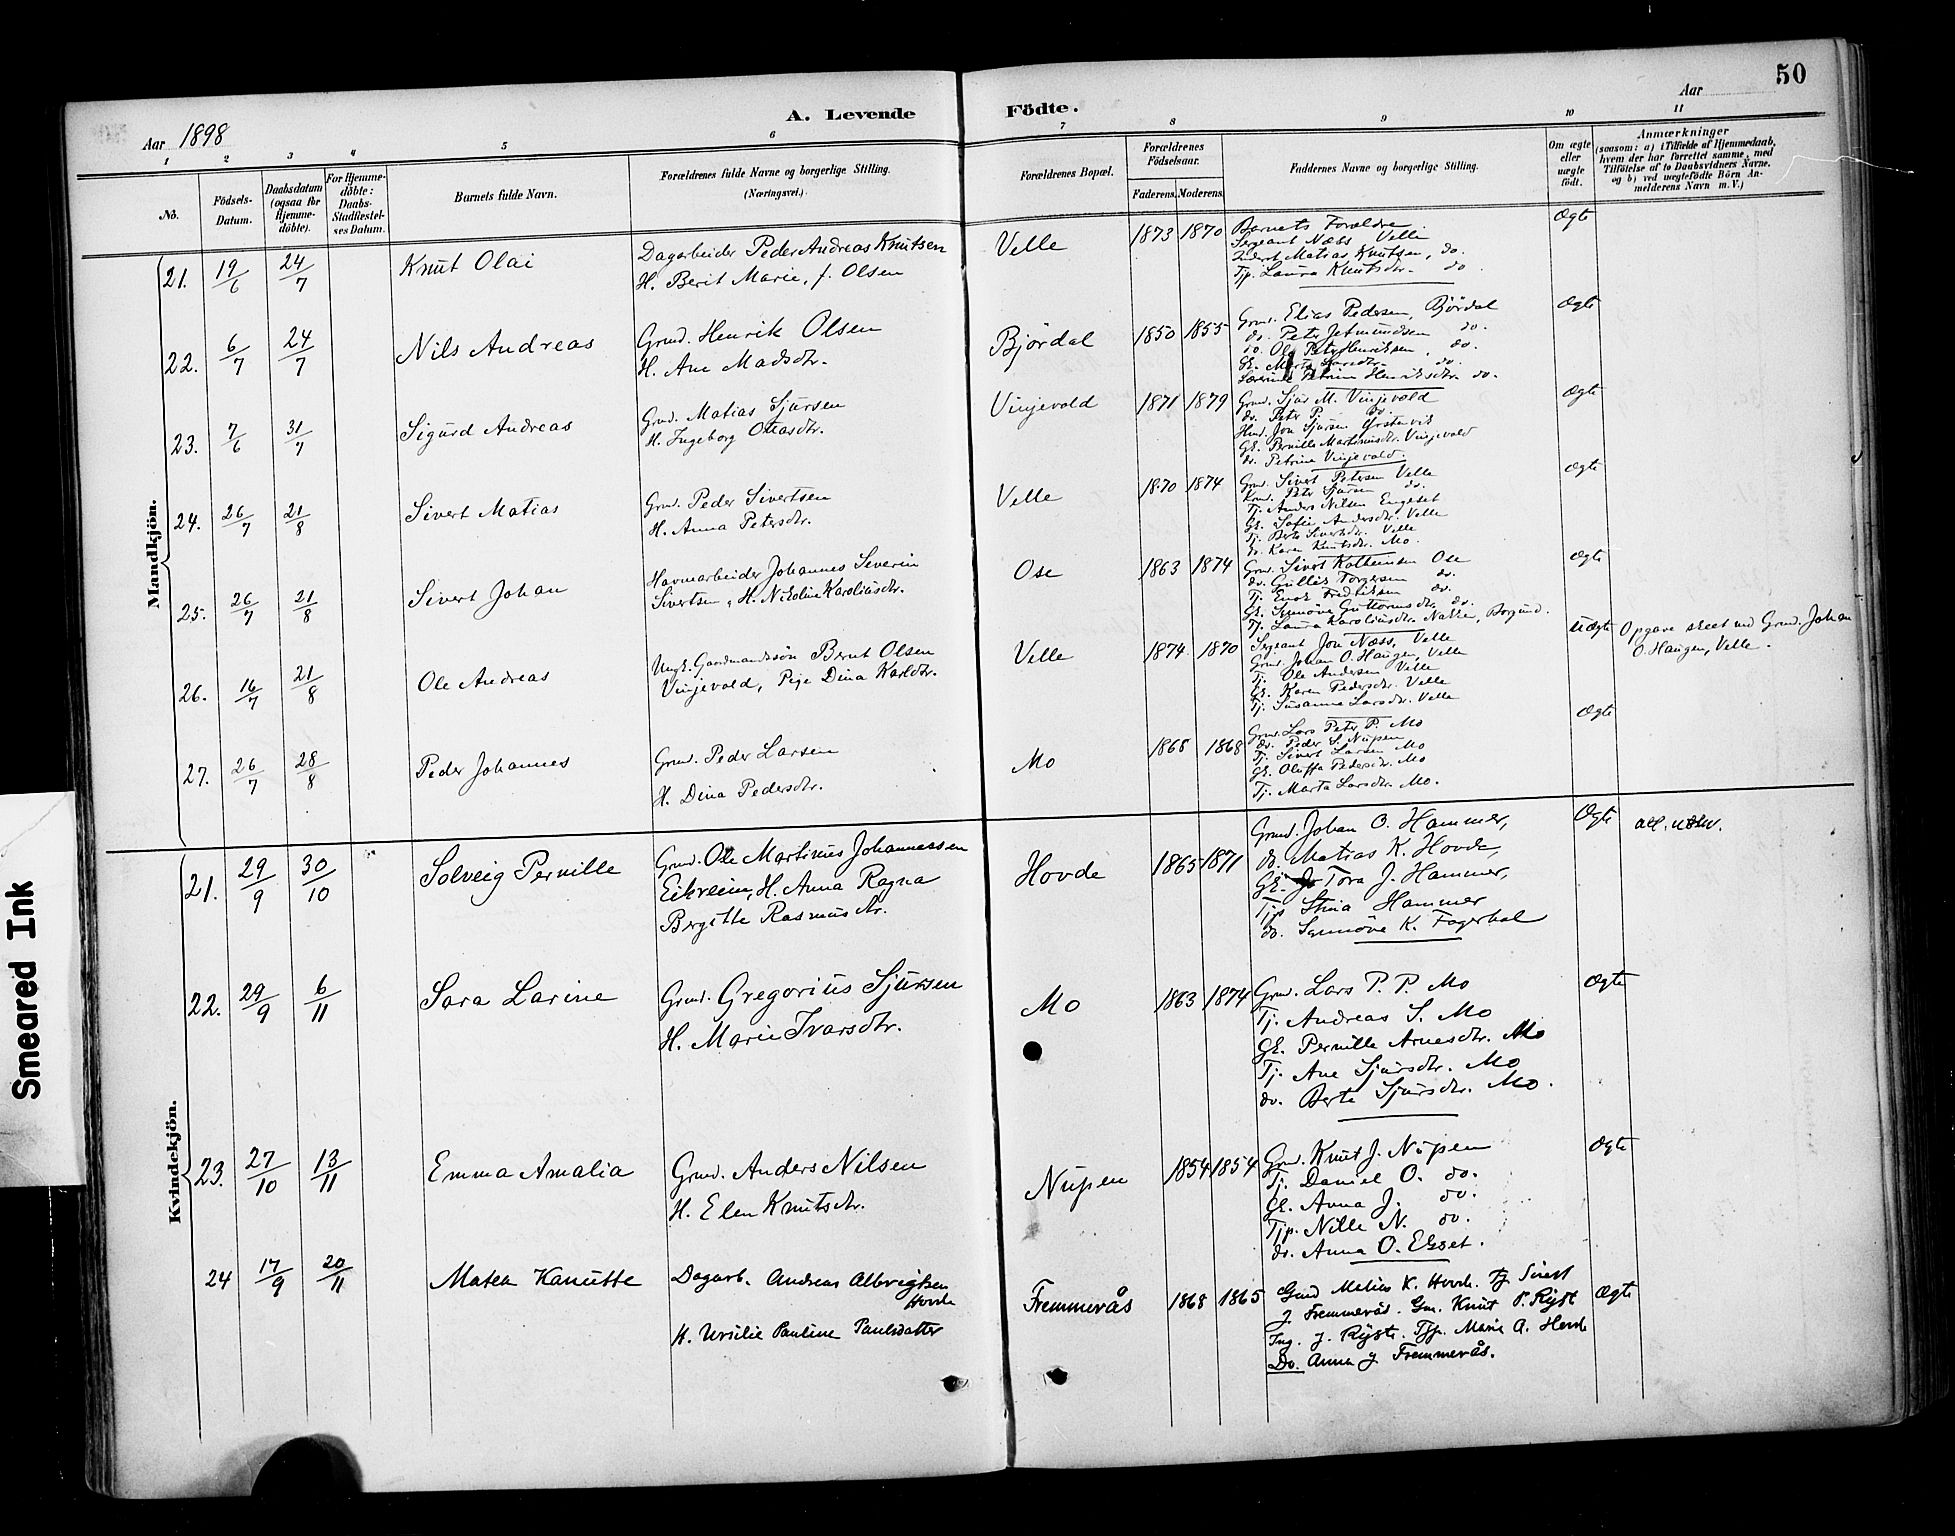 50
A. Levende Födte.
Aar 1898
Aar
1 2 3 4 5 6 7 8 9 10 11
No.
Födsels-Datum.
Daabsdatum (ogsaa for Hjemme-döbte).
For Hjemme-döbte: Daabs-Stadfæstel-ses Datum.
Barnets fulde Navn.
Forældrenes fulde Navne og borgerlige Stilling.
(Næringsvei.)
Forældrenes Bopæl.
Forældrenes Födselsaar.
Faderens. Moderens.
Faddernes Navne og borgerlige Stilling.
Om ægte eller uægte födt.
Anmærkninger
(saasom: a) i Tilfælde af Hjemmedaab,
hvem der har forrettet samme, med
Tilföielse af to Daabsvidners Navne,
og b) ved uægtefödte Börn An-
melderens Navn m. V.)
Mandkjön.
21. 19/6 24/7 Knut Olai
Dagarbeider Peder Andreas Knutsen
H. Berit Marie, f. Olsen
Velle 1873 1870
Barnets Forældre
Sergeant Næss Velle
Matias Knutsen, do.
Tjp. Laura Knutsdtr. do
Ægte
22. 6/7 24/7 Nils Andreas
Grmd. Henrik Olsen
H. Ane Madsdtr.
Björdal 1850 1855
Grmd. Elias Pedersen, Björdal
do. Peter Jetmundsen do.
do. Ole Peter Henriksen, do.
Gk. Marte Larsdtr. do.
Petrine Henriksdtr. do.
Ægte
23. 7/6 31/7 Sigurd Andreas
Grmd. Matias Sjursen
H. Ingeborg Oliasdtr.
Vinjevold 1871 1879
Grmd. Sjur M. Vinjevold
do. Peter P. do.
Jon Sjursen Ørstenvik
Gk. Pernille Martinusdtr. Vinjevold
do. Petrine Vinjevold.
Ægte
24. 26/7 21/8 Sivert Matias
Grmd. Peder Sivertsen
H. Anna Petersdtr.
Velle 1870 1874
Grmd. Sivert Petersen Velle
Peter Sjursen do.
Tj. Anders Nilsen Engeset
Gk. Sofie Andersdtr. Velle
Tj. Berte Sivertsdtr. Velle
do. Karen Knutsdtr. Mo.
Ægte
25. 26/7 21/8 Sivert Johan
Havnarbeider Johannes Severin
Sivertsen, H. Nikoline Karoliusdtr.
Ose 1863 1874
Grmd. Sivert Ose
do. Gullik Torgersen do.
Tj. Enok Fredriksen do.
Gk. Synnöve Guttormsdtr. do.
Tj. Laura Karoliusdtr. Nakken, Borgund.
Ægte
26. 16/7 21/8 Ole Andreas
Ungk. Gaardmandssön Bernt Olsen
Vinjevold, Pige Dina Karldtr.
Velle 1874 1870
Sergeant Jon Næss, Velle
Grmd. Johan O. Haugen, Velle
Tj. Ole Andersen Velle
Gk. Karen Pedersdtr. Velle
Tj. Susanne Larsdtr. Velle
Uægte
Opgave skeet ved Grmd. Johan
O. Haugen, Velle.
27. 26/7 28/8 Peder Johannes
Grmd. Peder Larsen
H. Dina Pedersdtr.
Mo 1868 1868
Grmd. Lars Peter P. Mo
do. Peder S. Nupen
Tj. Sivert Larsen Mo
Gk. Oluffa Pedersdtr. Mo
Tj. Marta Larsdtr. Mo.
Ægte
Kvindekjön.
21. 29/9 30/10 Solveig Pernille
Grmd. Ole Martinus Johannessen
Eikreim, H. Anna Ragna
Bergitte Rasmusdtr.
Hovde 1865 1871
Grmd. Johan O. Hammer,
do. Matias K. Hovde,
Gk. Tora J. Hammer,
Tjp. Stina Hammer
do. Synnöve K. Fagerhol
Ægte
22. 29/9 6/11 Sara Larine
Grmd. Gregorius Sjursen
H. Marie Ivarsdtr.
Mo 1863 1874
Grmd. Lars P. P. Mo
Tj. Andreas S. Mo
Gk. Pernille Arnesdtr. Mo
Tj. Ane Sjursdtr. Mo
do. Berte Sjursdtr. Mo.
Ægte
23. 27/10 13/11 Emma Amalia
Grmd. Anders Nilsen
H. Elen Knutsdtr.
Nupen 1854 1854
Grmd. Knut J. Nupen
Tj. Daniel O. do.
Gk. Anna J. do.
Tjp. Nille N. do.
do. Anna O. Ekset.
Ægte
24 17/9 20/11 Matea Kanutte
Dagarb. Andreas Albrigtsen
Hovde
H. Ursilie Pauline Paulsdatter
Fremmerås 1868 1865
Grmd Matias K. Hovde. Tj. Sivert
J. Fremmerås. Gm. Knut P. Ryst
Ing. J. Ryste. Tjp. Marie A. Hovde
Do. Anna J Fremmerås.
Ægte
Smeared Ink